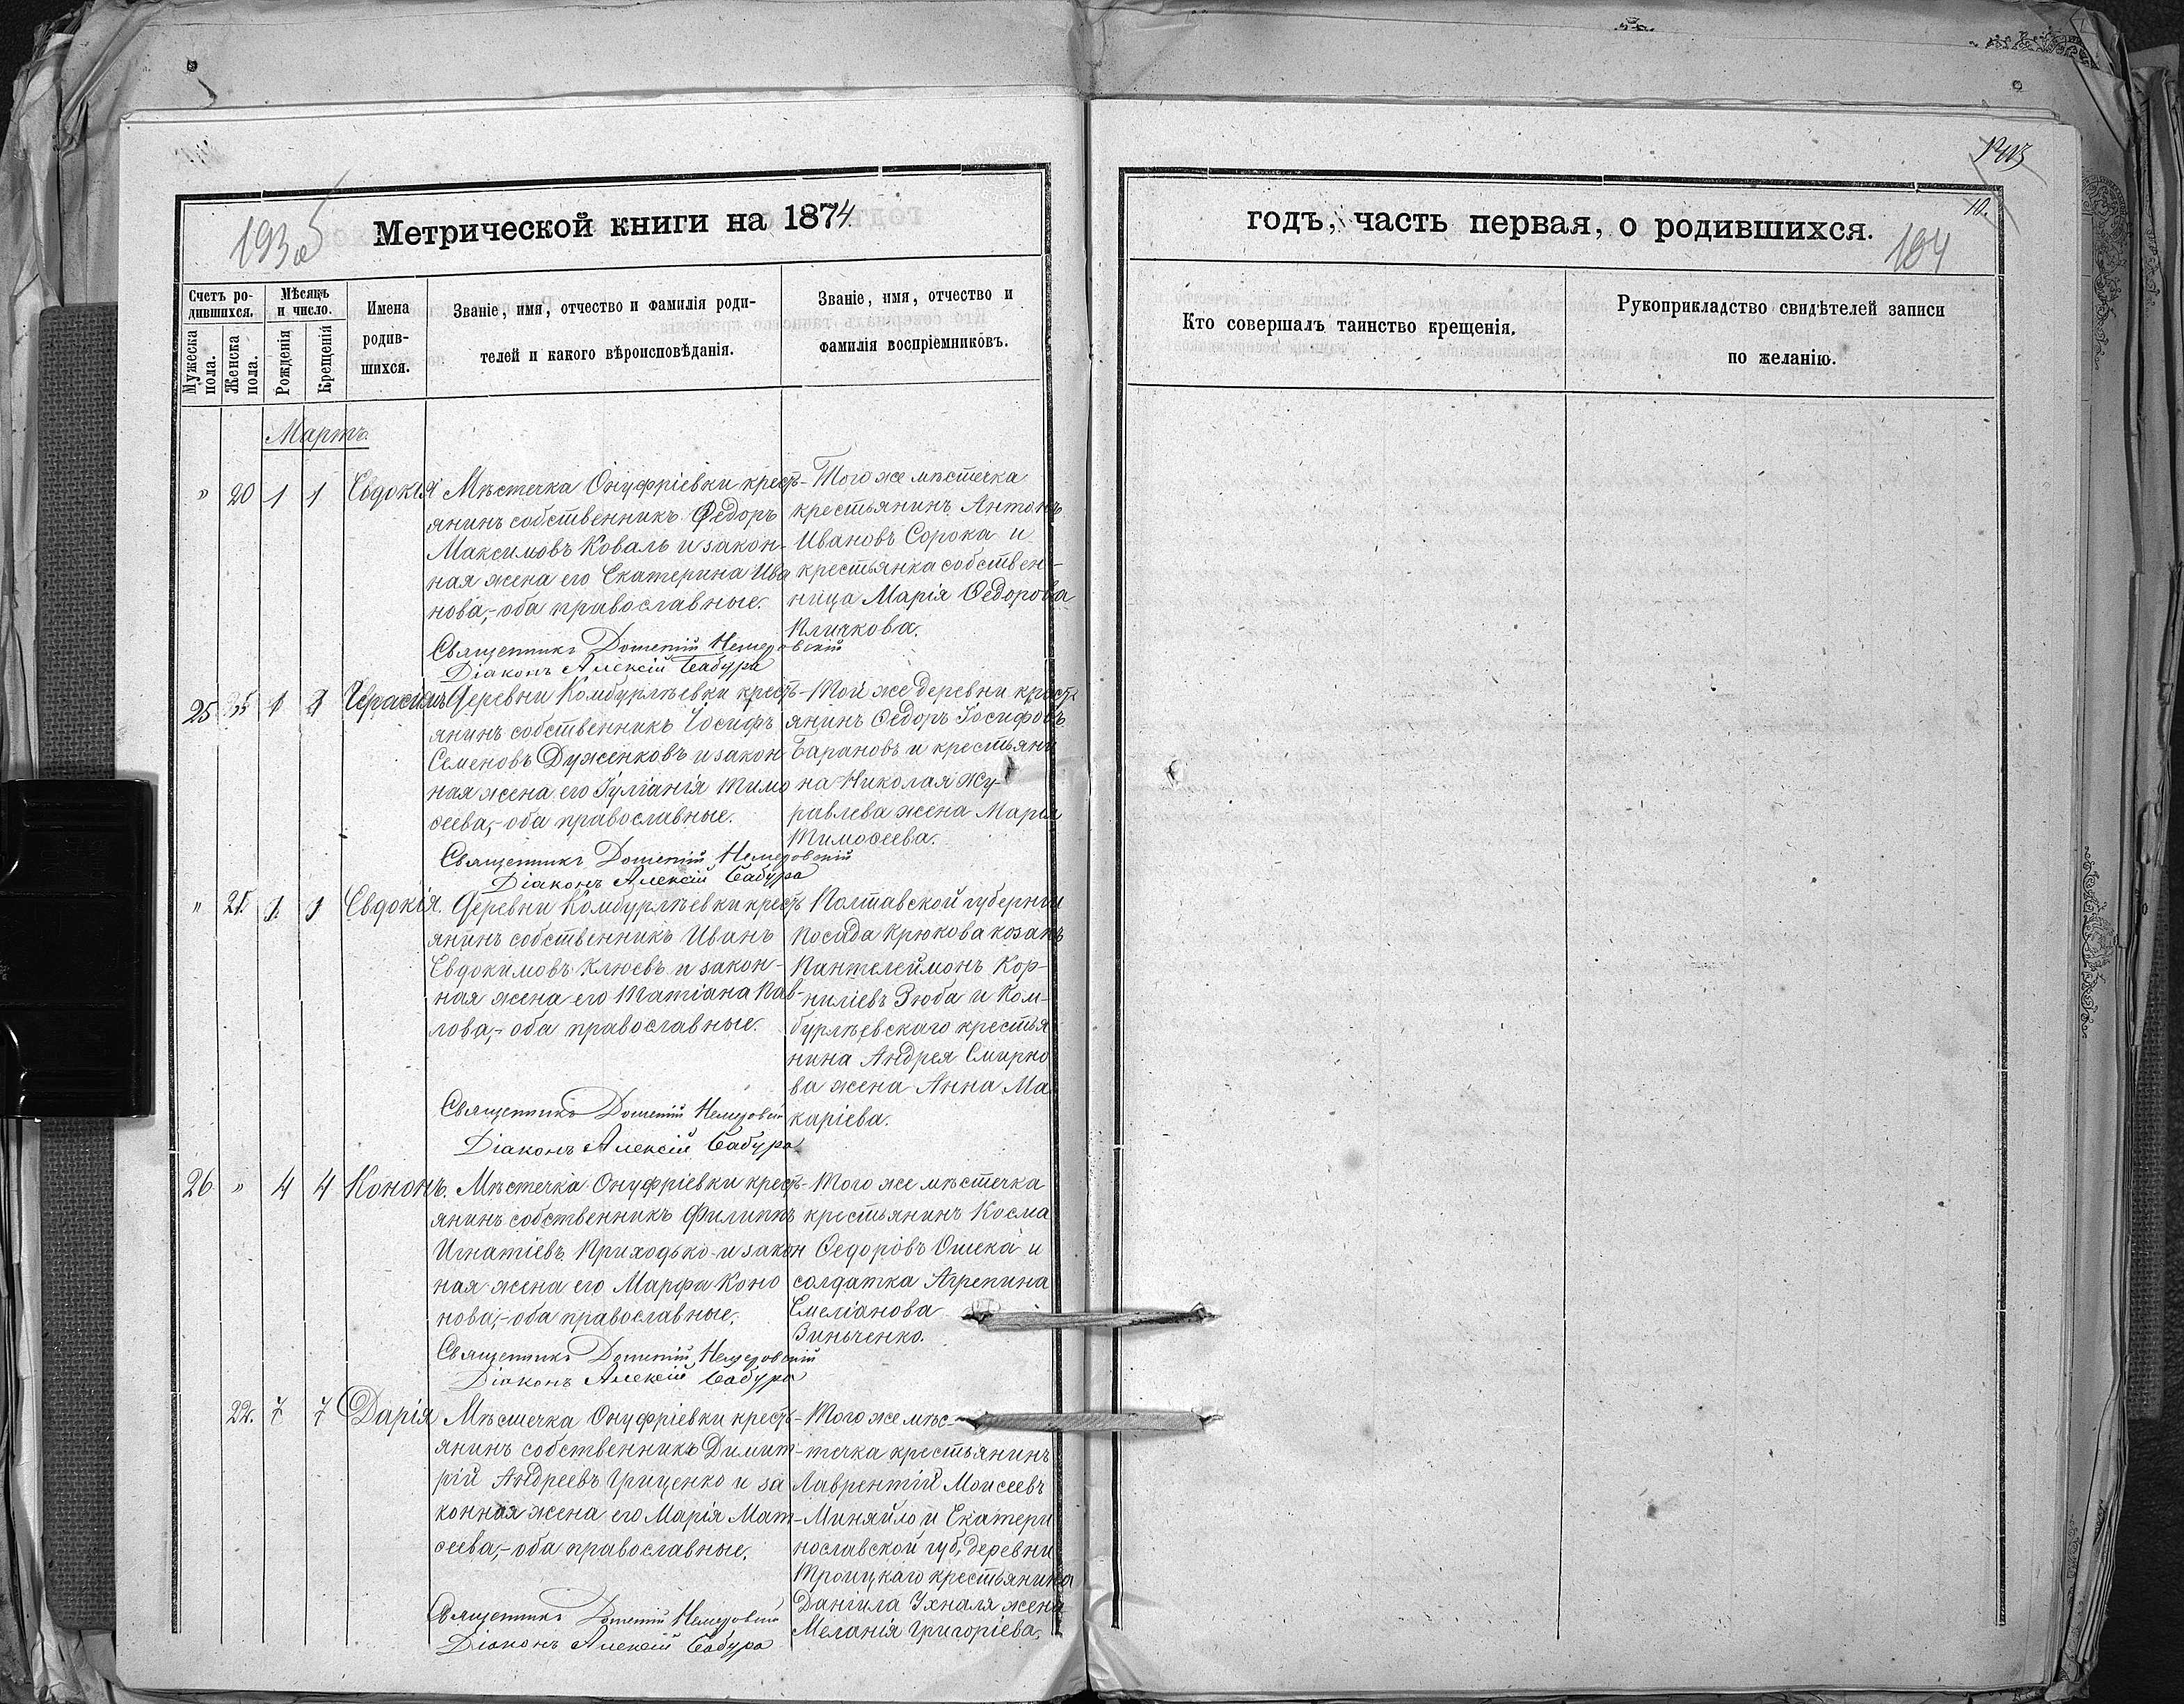 193 об
Метрической книги на 1874
Счетъ ро-
дившихся.
Мѣсяцъ
и число.
Имена
родив-
шихся.
Званіе, имя, отчество и фамилія роди-
телей и какого вѣроисповѣданія.
Званіе, имя, отчество и
фамилія воспріемниковъ.
Мужеска
пола.
Женска
пола.
Рожденія
Крещенія
Мартъ.
" 20 1 1 Евдокія
Мѣстечка Онуфріевки кресть-
янинъ собственникъ Ѳедоръ
Максимовъ Коваль и закон-
ная жена его Екатерина Ива
нова,- оба православные.
Священникъ Дометій Немеровскій
Діаконъ Алексій Бабура
Того же мѣстечка
крестьянинъ Антонъ
Ивановъ Сорока и
крестьянка собствен-
ница Марія Ѳедорова
Кличкова.
25 " 1 1 Герасимъ
Деревни Комбурлѣевки кресть-
янинъ собственникъ Іосифъ
Семеновъ Дуженковъ и закон
ная жена его Іуліанія Тимо
ѳеева,- оба православные.
Священникъ Дометій Немеровскій
Діаконъ Алексій Бабура
Той же деревни кресть
янинъ Ѳедоръ Іосифовъ
Барановъ и крестьяни
на Николая Жу-
равлева жена Марія
Тимоѳеева.
" 21. 1. 1 Евдокія.
Деревни Комбурлѣевки кресть
янинъ собственникъ Иванъ
Евдокимовъ Клюевъ и закон-
ная жена его Татіана Пав-
лова,- оба православные.
Священникъ Дометій Немеровскій
Діаконъ Алексій Бабура
Полтавской губерніи
Посада Крюкова козакъ
Пантелеймонъ Кор-
ниліевъ Зюба и Ком-
бурлѣевскаго крестья
нина Андрея Смирно
ва жена Анна Ма
каріева.
26 " 4 4 Кононъ.
Мѣстечка Онуфріевки кресть-
янинъ собственникъ Филиппъ
Игнатіевъ Приходько и закон
ная жена его Марфа Коно
нова,- оба православные.
Священникъ Дометій Немеровскій
Діаконъ Алексій Бабура
Того же мѣстечка
крестьянинъ Косма
Ѳедоровъ Ошека и
солдатка Агрепина
Емеліанова
Зинченко.
22. 7 7 Дарія
Мѣстечка Онуфріевки кресть-
янинъ собственникъ Димит-
рій Андреевъ Гриценко и за
конная жена его Марія Мат-
ѳеева,- оба православные.
Священникъ Дометій Немеровскій
Діаконъ Алексій Бабура
Того же мѣс-
течка крестьянинъ
Лаврентій Моисеевъ
Миняйло и Екатери
нославской губ. деревни
Троицкаго крестьянина
Даніила Ухналя жена
Меланія Григоріева.
10.
годъ, часть первая, о родившихся.
194
Кто совершалъ таинство крещенія.
Рукоприкладство свидѣтелей записи
по желанію.